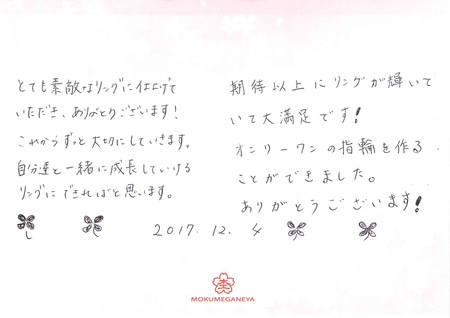 とても素敵なリングに仕上げて
いただき、ありがとうございます！
これからずっと大切にしていきます。
自分達と一緒に成長していける
リングにできればと思います。
期待以上にリングが輝いて
いて大満足です！
オンリーワンの指輪を作る
ことができました。
ありがとうございます！
2017.12.4
MOKUMEGANEYA